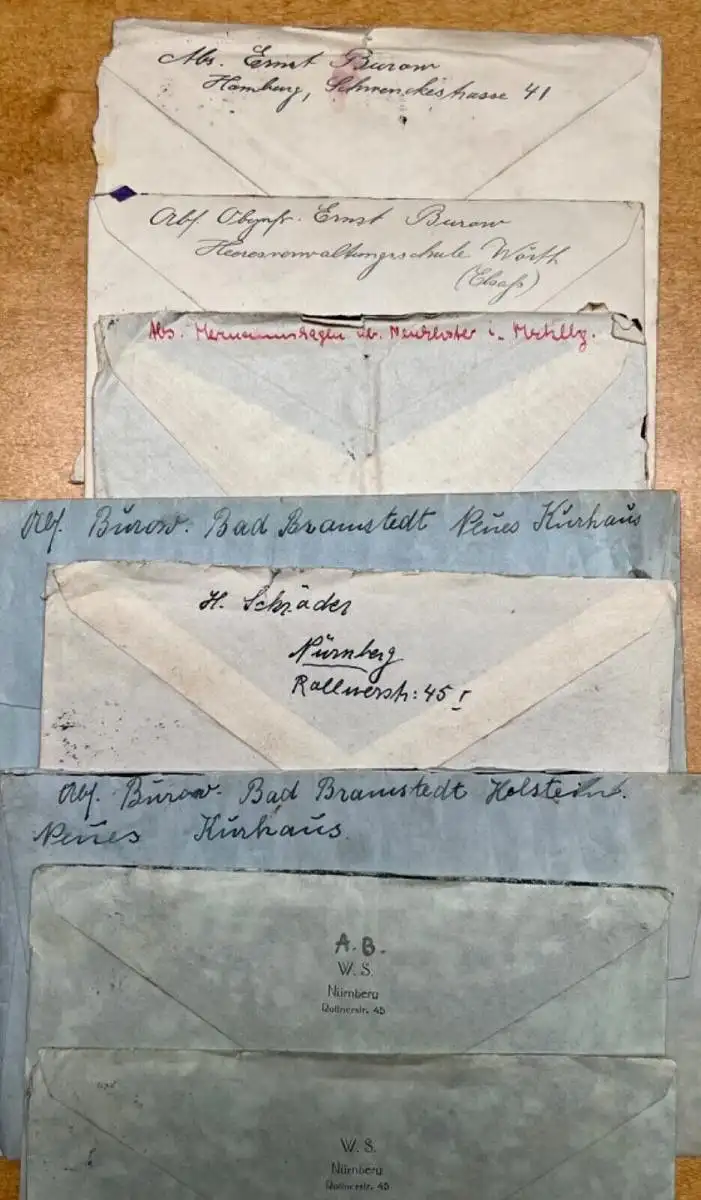 Abs. Ernst Burow
Hamburg, Schwenckestrasse 41
Abs. Obgefr. Ernst Burow
Heeresverwaltungsschule Wörth
(Elsaß)
Abs. Hermannshagen üb. Neukloster i. Mecklbg.
Abs. Burow. Bad Bramstedt Neues Kurhaus
H. Schräder
Nürnberg
Rollnerstr: 45 I
Abs. Burow. Bad Bramstedt Holstein.
Neues Kurhaus.
A. B.
W. S.
Nürnberg
Rollnerstr. 45
W. S.
Nürnberg
Rollnerstr. 45